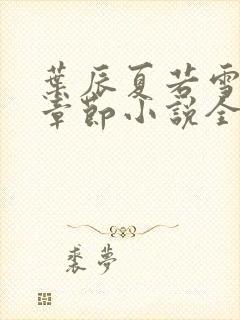 葉辰夏若雪
章節小說全
裘夢